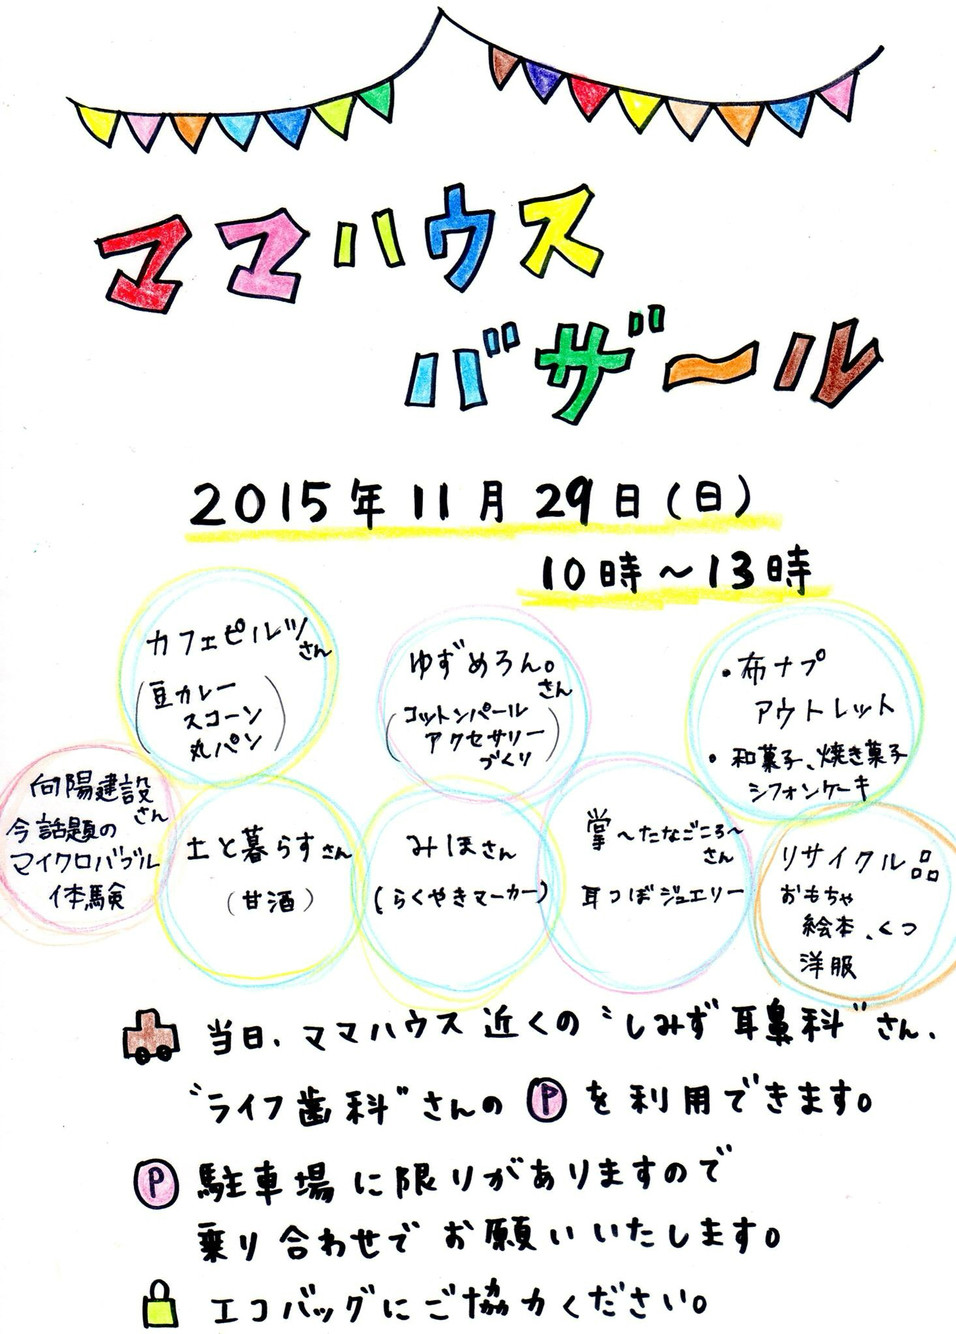 ママハウス
バザール
2015年11月29日(日)
10時～13時
カフェピルツ
さん
(豆カレー
スコーン
丸パン)
ゆずめろん。
さん
(コットンパール
アクセサリー
づくり)
・布ナプ
アウトレット
・和菓子、焼き菓子
シフォンケーキ
向陽建設
さん
今話題の
マイクロバブル
体験
土と暮らすさん
(甘酒)
みほさん
(らくやきマーカー)
掌～たなごころ～
さん
耳つぼジュエリー
リサイクル品
おもちゃ
絵本、くつ
洋服
当日、ママハウス近くの"しみず耳鼻科"さん、
"ライフ歯科"さんのⓅを利用できます。
Ⓟ駐車場に限りがありますので
乗り合わせでお願いいたします。
エコバッグにご協力ください。